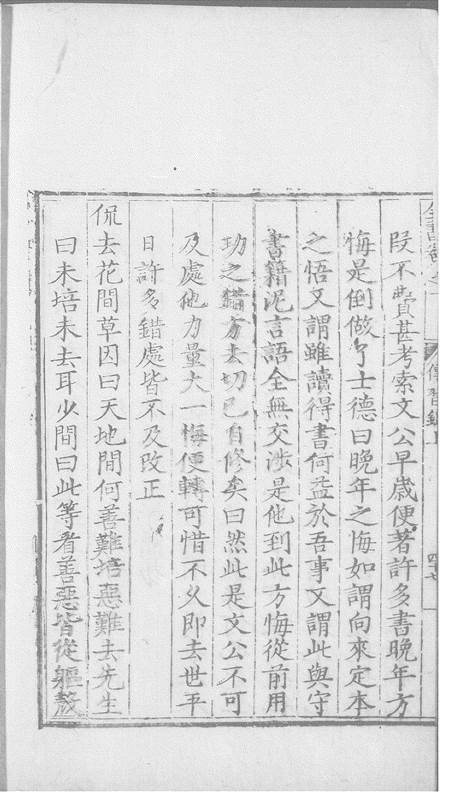 段不費甚考索文公早歲便著許多書晚年方
悔是倒做了士德曰晚年之悔如謂向來定本
之悟又謂雖讀得書何益於吾事又謂此與守
書籍泥言語全無交涉是他到此方悔從前用
功之錯方去切己自修矣曰然此是文公不可
及處他力量大一悔便轉可惜不久即去世平
日許多錯處皆不及改正
侃去花間草因曰天地間何善難培惡難去先生
曰未培未去耳少間曰此等看善惡皆從軀殼